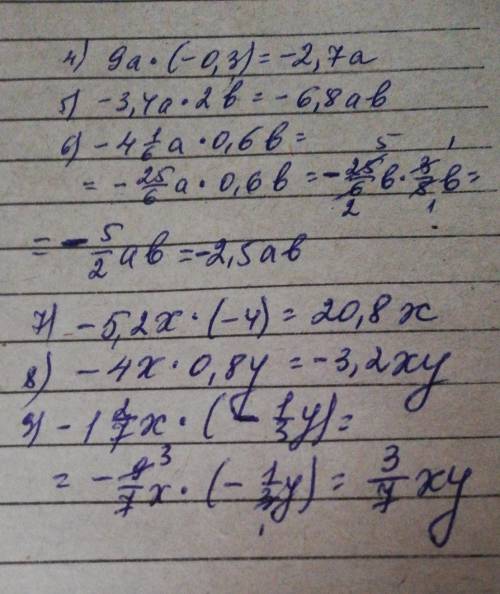 4) 9a · (-0,3) = -2,7a
5) -3,4a · 2b = -6,8ab
6) -4 1/6 a · 0,6b =
= -25/6 a · 0,6b = -25/6 b · 3/5 b =
= -5/2 ab = -2,5ab
7) -5,2x · (-4) = 20,8x
8) -4x · 0,8y = -3,2xy
9) -1 2/7 x · (-1/3 y) =
= -9/7 x · (-1/3 y) = 3/7 xy